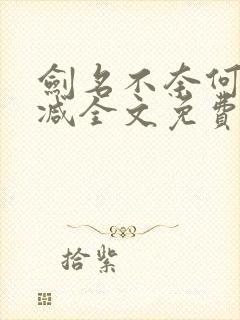 劍名不奈何
減全文免費
拾紫